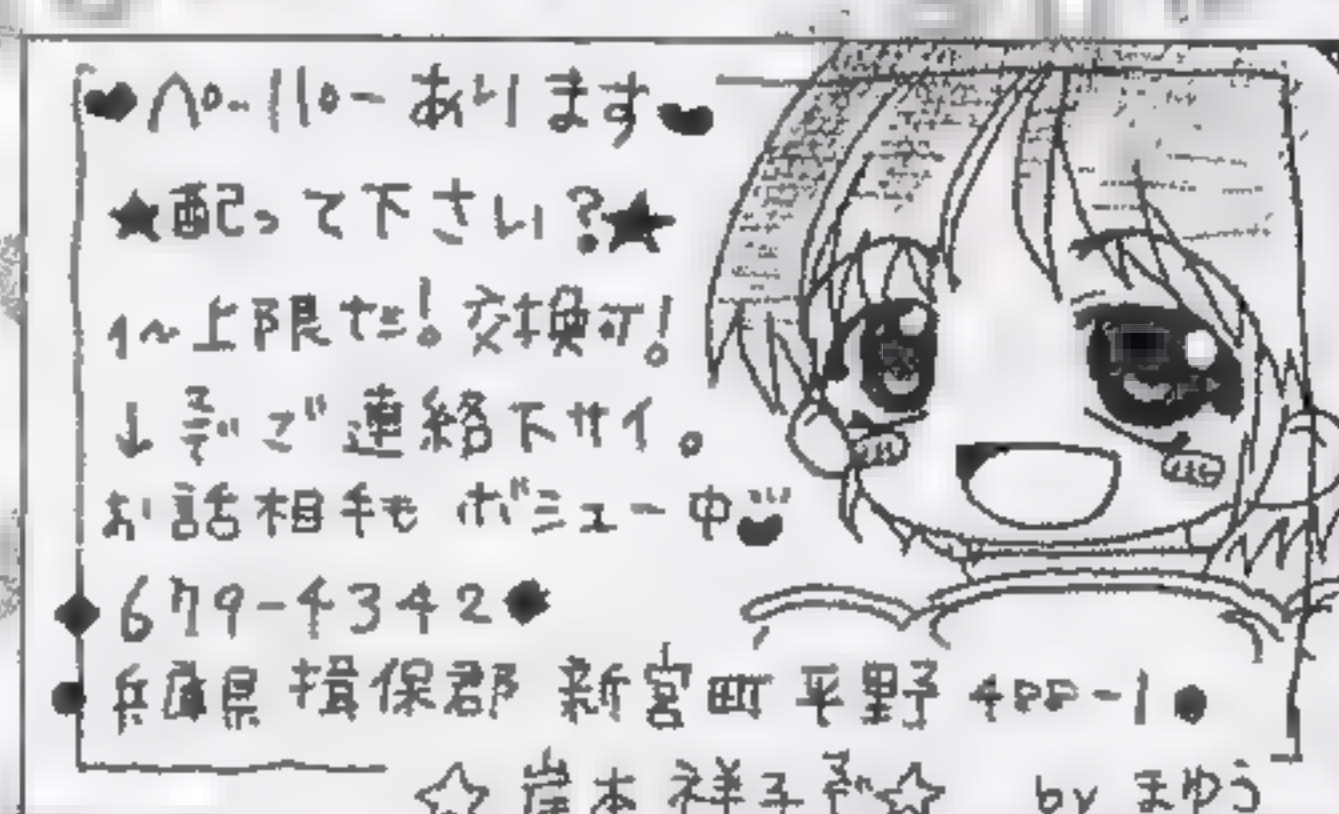 ♥ペーパーあります♥
★配って下さい?★
1〜上限だ!交換可!
↓までご連絡下サイ。
お話相手もボシュー中♥
◆679-4342●
●兵庫県 揖保郡 新宮町 平野 488-1●
☆岸本 祥子まで☆ by まゆう